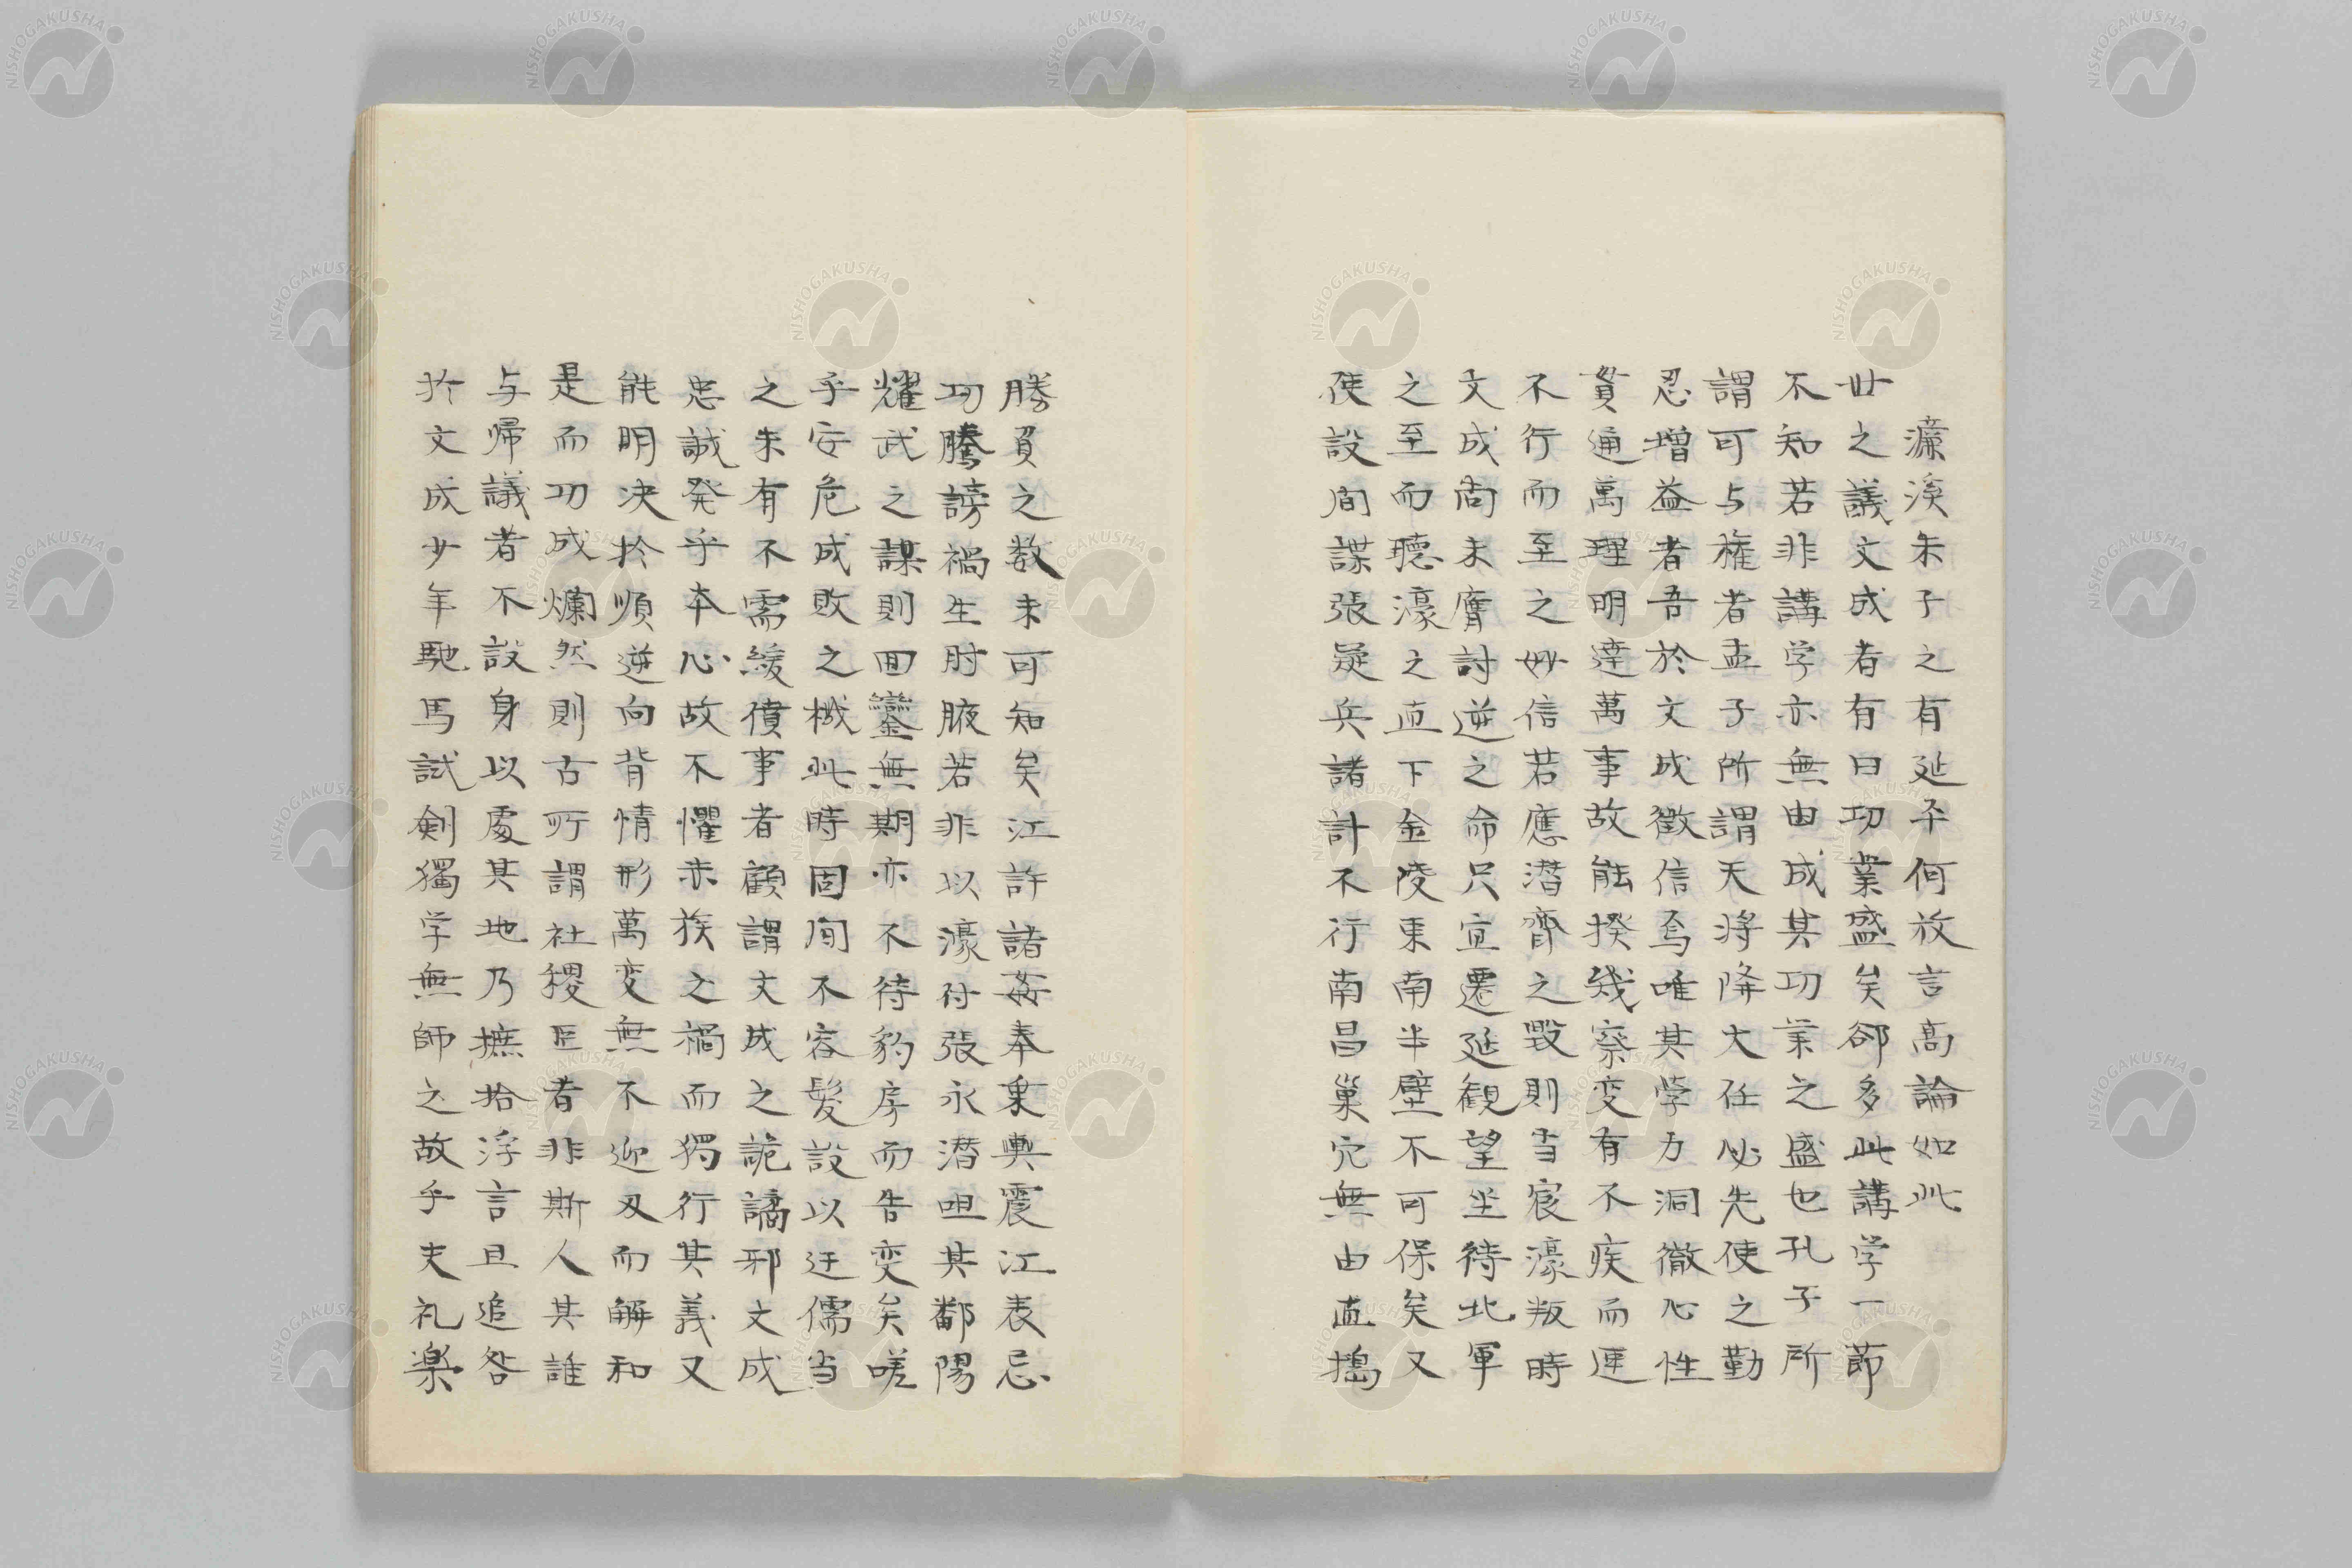 濂溪朱子之有延平何放言高論如此
世之議文成者有曰功業盛矣郤多此講学一節
不知若非講学亦無由成其功業之盛也孔子所
謂可与権者孟子所謂天将降大任必先使之動
忍増益者吾於文成徴信焉唯其学力洞徹心性
貫通萬理明達萬事故能揆幾察変有不疾而速
不行而至之妙信若應潜齊之毀則当宸濠叛時
文成尚未膺討逆之命只宜遷延観望坐待北軍
之至而聴濠之直下金陵東南半壁不可保矣又
使設間諜張疑兵諸計不行南昌巣穴無由直搗
勝負之数未可知矣江許諸姦奉乗輿震江表忌
功騰謗禍生肘腋若非以濠付張永潜咀其鄱陽
耀武之謀則回鑾無期亦不待豹房而告変矣嗟
乎安危成敗之機此時固間不容髪設以迂儒当
之未有不需緩僨事者顧謂文成之詭譎邪文成
忠誠発乎本心故不懼赤族之禍而獨行其義又
能明决扵順逆向背情形萬変無不迎刃而解和
是而功成爛然則古所謂社稷臣者非斯人其誰
与帰議者不設身以處其地乃摭拾浮言且追咎
扵文成少年馳馬試剣獨学無師之故乎夫礼楽
NISHOGAKUSHA